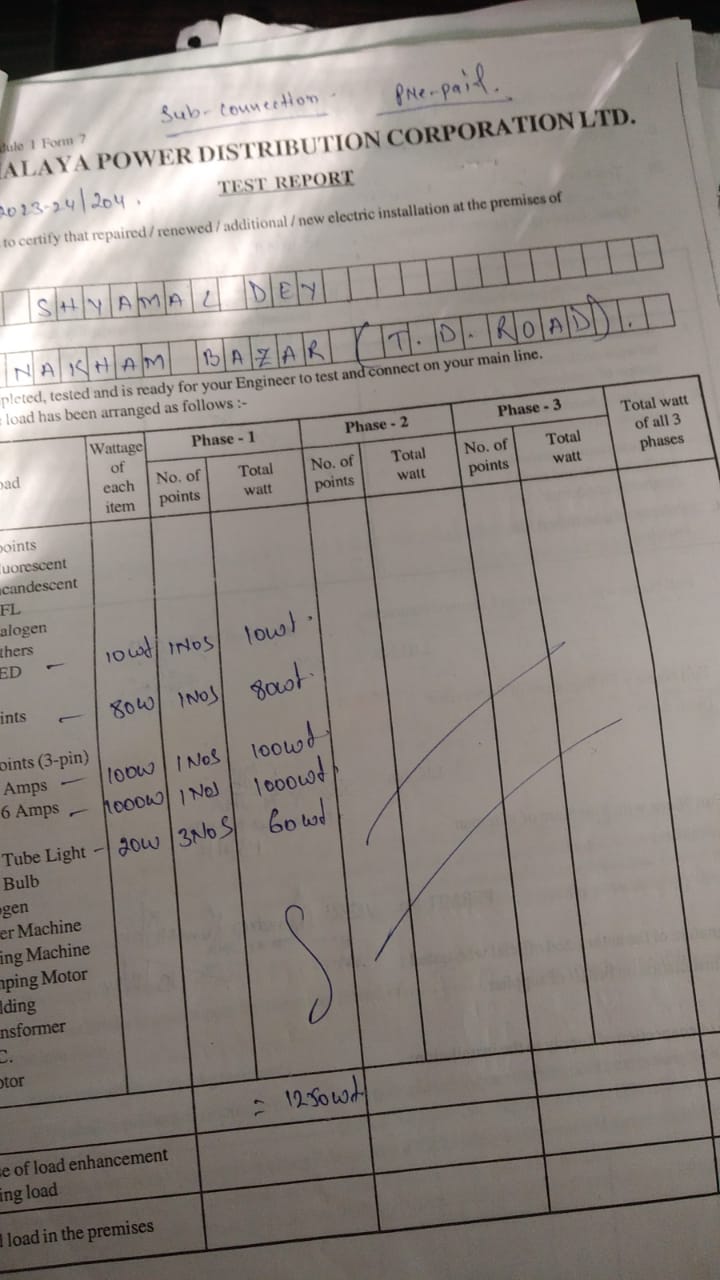 Sub-connection. Pre-paid.
dule 1 Form 7
ALAYA POWER DISTRIBUTION CORPORATION LTD.
TEST REPORT
2023-24/204.
to certify that repaired / renewed / additional / new electric installation at the premises of
SHYAMAL DEY
NAKHAM BAZAR (T.D. ROAD).
pleted, tested and is ready for your Engineer to test and connect on your main line.
load has been arranged as follows :-
oad
Wattage of each item
Phase - 1
Phase - 2
Phase - 3
Total watt of all 3 phases
No. of points
Total watt
No. of points
Total watt
No. of points
Total watt
oints
uorescent
candescent
FL
alogen
thers
ED – 10wt 1NOS 10wt.
ints – 80W 1NOS 80wt.
oints (3-pin)
Amps – 100W 1NOS 100wt.
6 Amps – 1000W 1NOS 1000wt.
Tube Light – 20W 3NOS 60wt
Bulb
ogen
er Machine
ing Machine
mping Motor
lding
nsformer
C.
otor
= 1250wt
e of load enhancement
ing load
l load in the premises